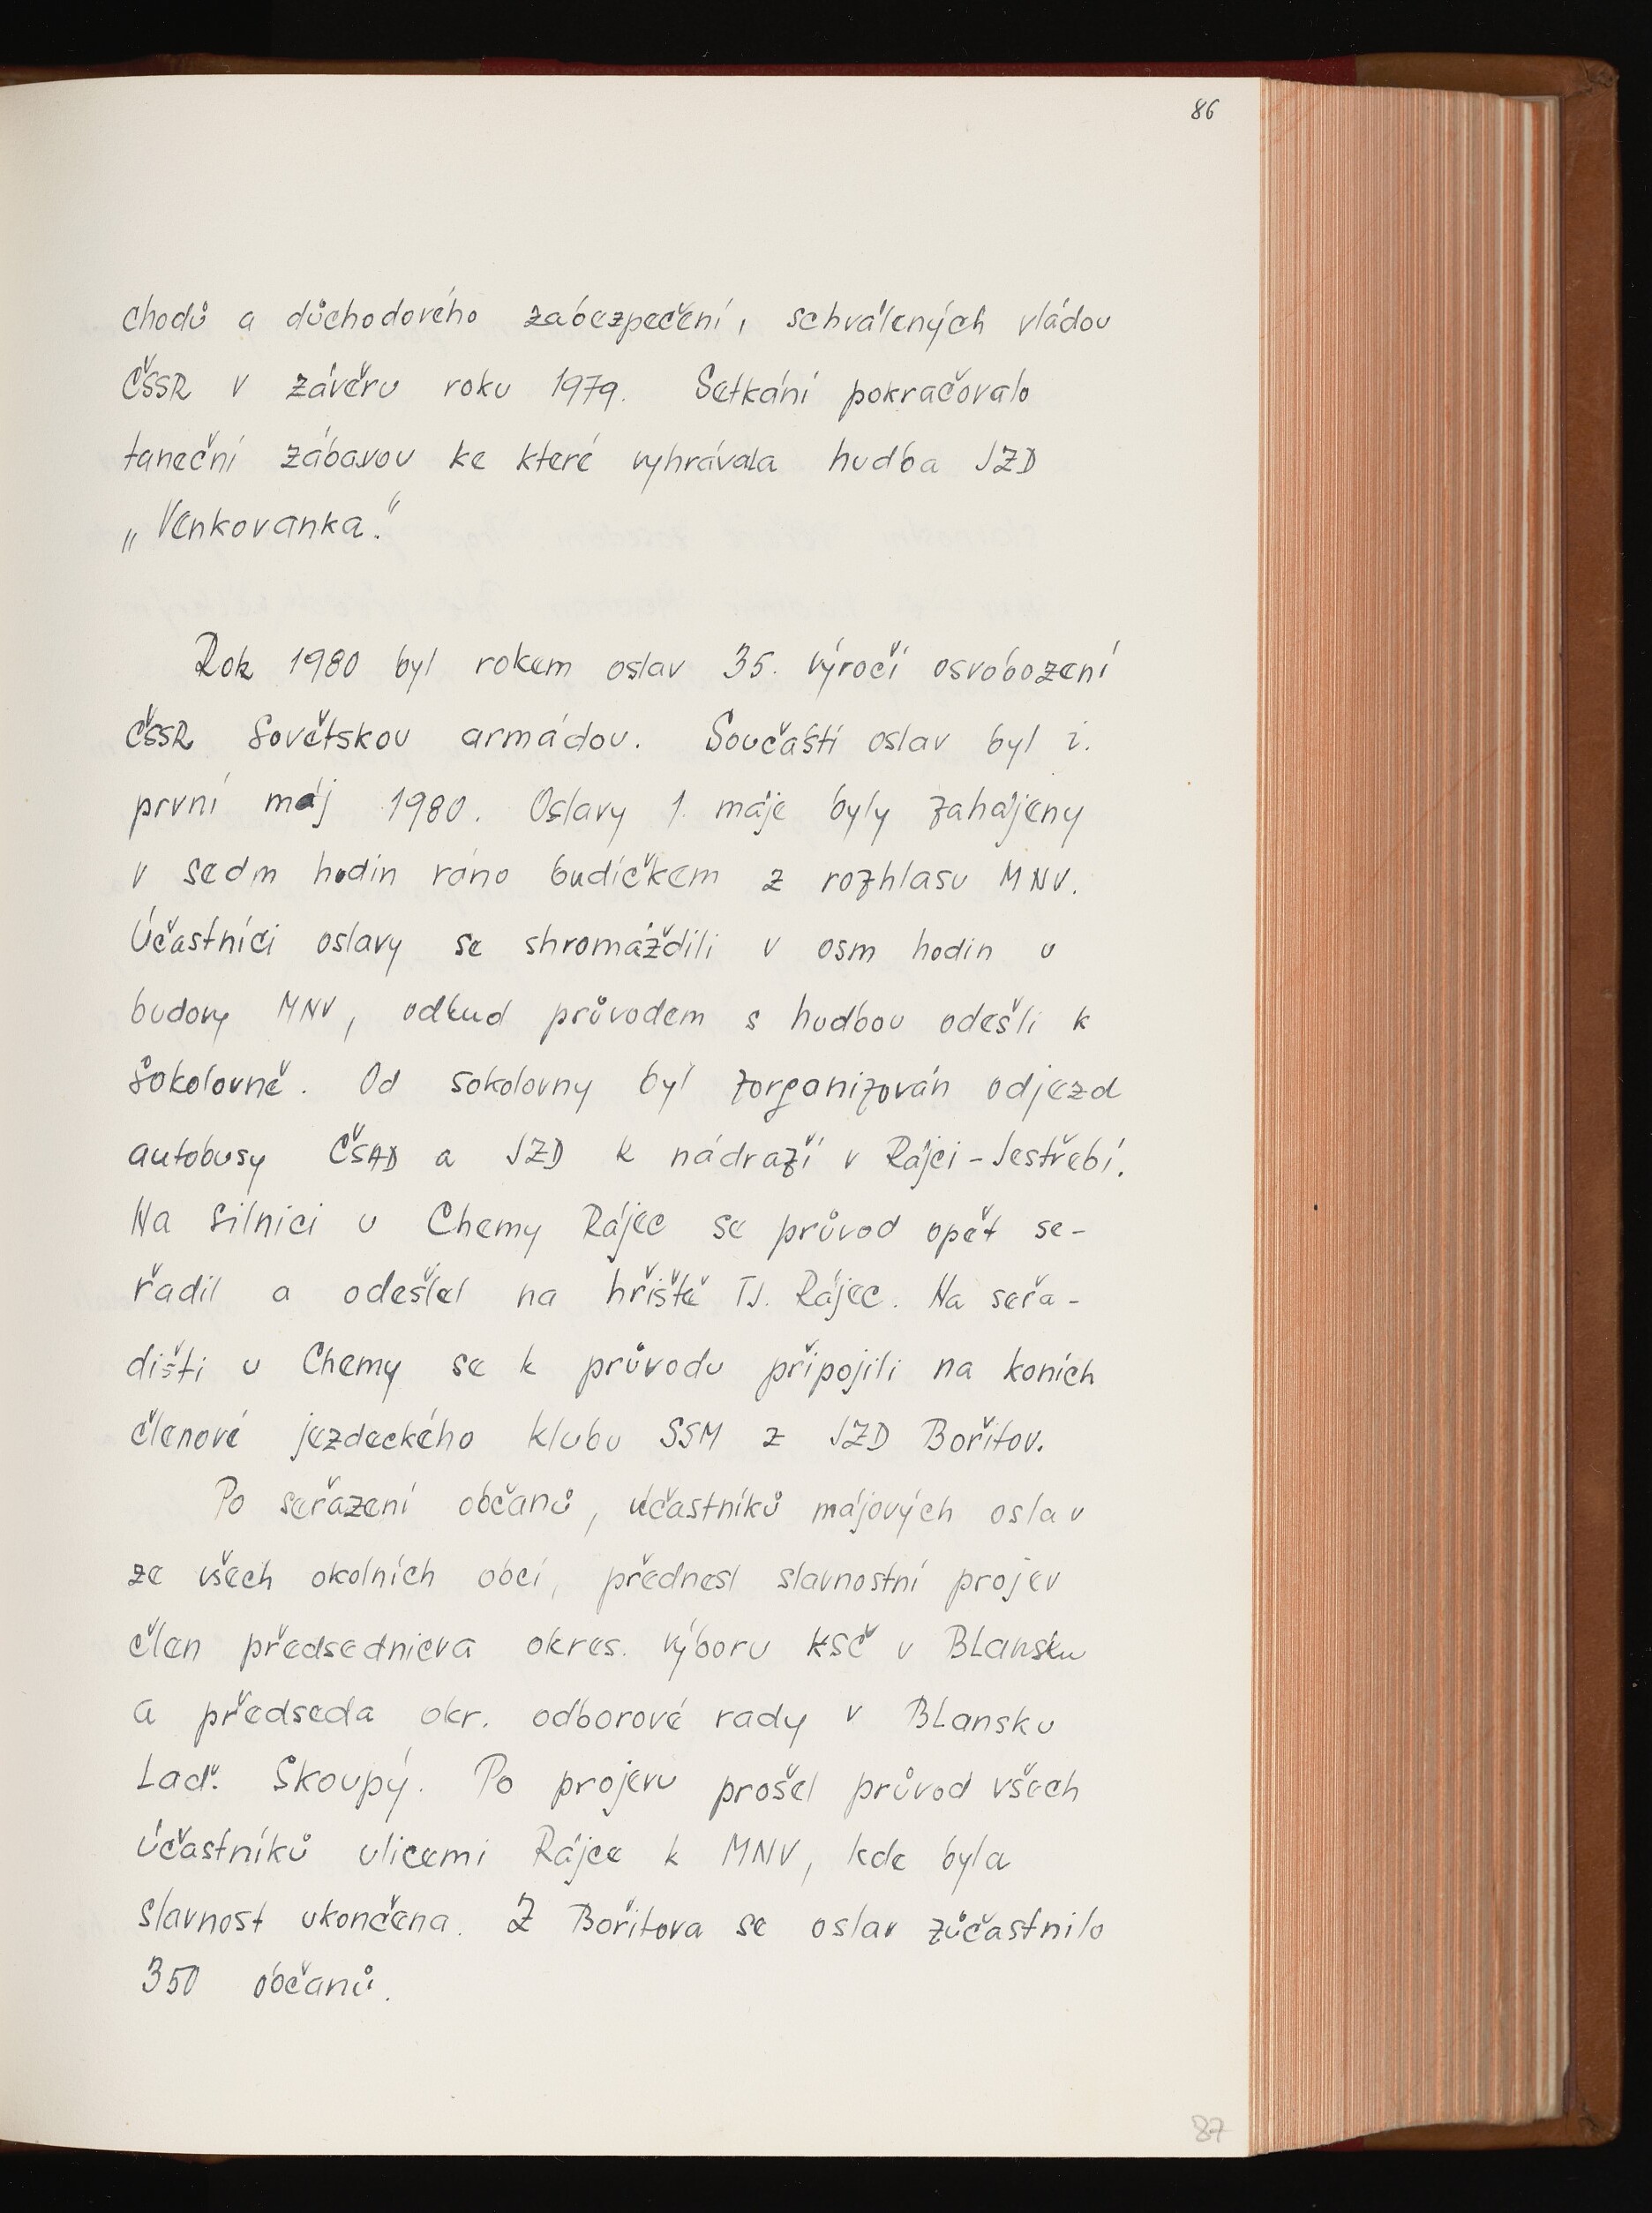 86
chodů a důchodového zabezpečení, schválených vládou
ČSSR v závěru roku 1979. Setkání pokračovalo
taneční zábavou ke které vyhrávala hudba JZD
„Venkovanka."
Rok 1980 byl rokem oslav 35. výročí osvobození
ČSSR Sovětskou armádou. Součástí oslav byl i.
první máj 1980. Oslavy 1. máje byly zahájeny
v sedm hodin ráno budíčkem z rozhlasu MNV.
Účastníci oslavy se shromáždili v osm hodin u
budovy MNV, odkud průvodem s hudbou odešli k
Sokolovně. Od sokolovny byl zorganizován odjezd
autobusy ČSAD a JZD k nádraží v Rájci-Jestřebí.
Na silnici u Chemy Rájec se průvod opět se-
řadil a odešel na hřiště TJ. Rájec. Na seřa-
dišti u Chemy se k průvodu připojili na koních
členové jezdeckého klubu SSM z JZD Bořitov.
Po seřazení občanů, účastníků májových oslav
ze všech okolních obcí, přednesl slavnostní projev
člen předsednicva okres. výboru KSČ v BLansku
a předseda okr. odborové rady v BLansku
Laď. Skoupý. Po projevu prošel průvod všech
účastníků ulicemi Rájce k MNV, kde byla
slavnost ukončena. Z Bořitova se oslav zúčastnilo
350 občanů.
87